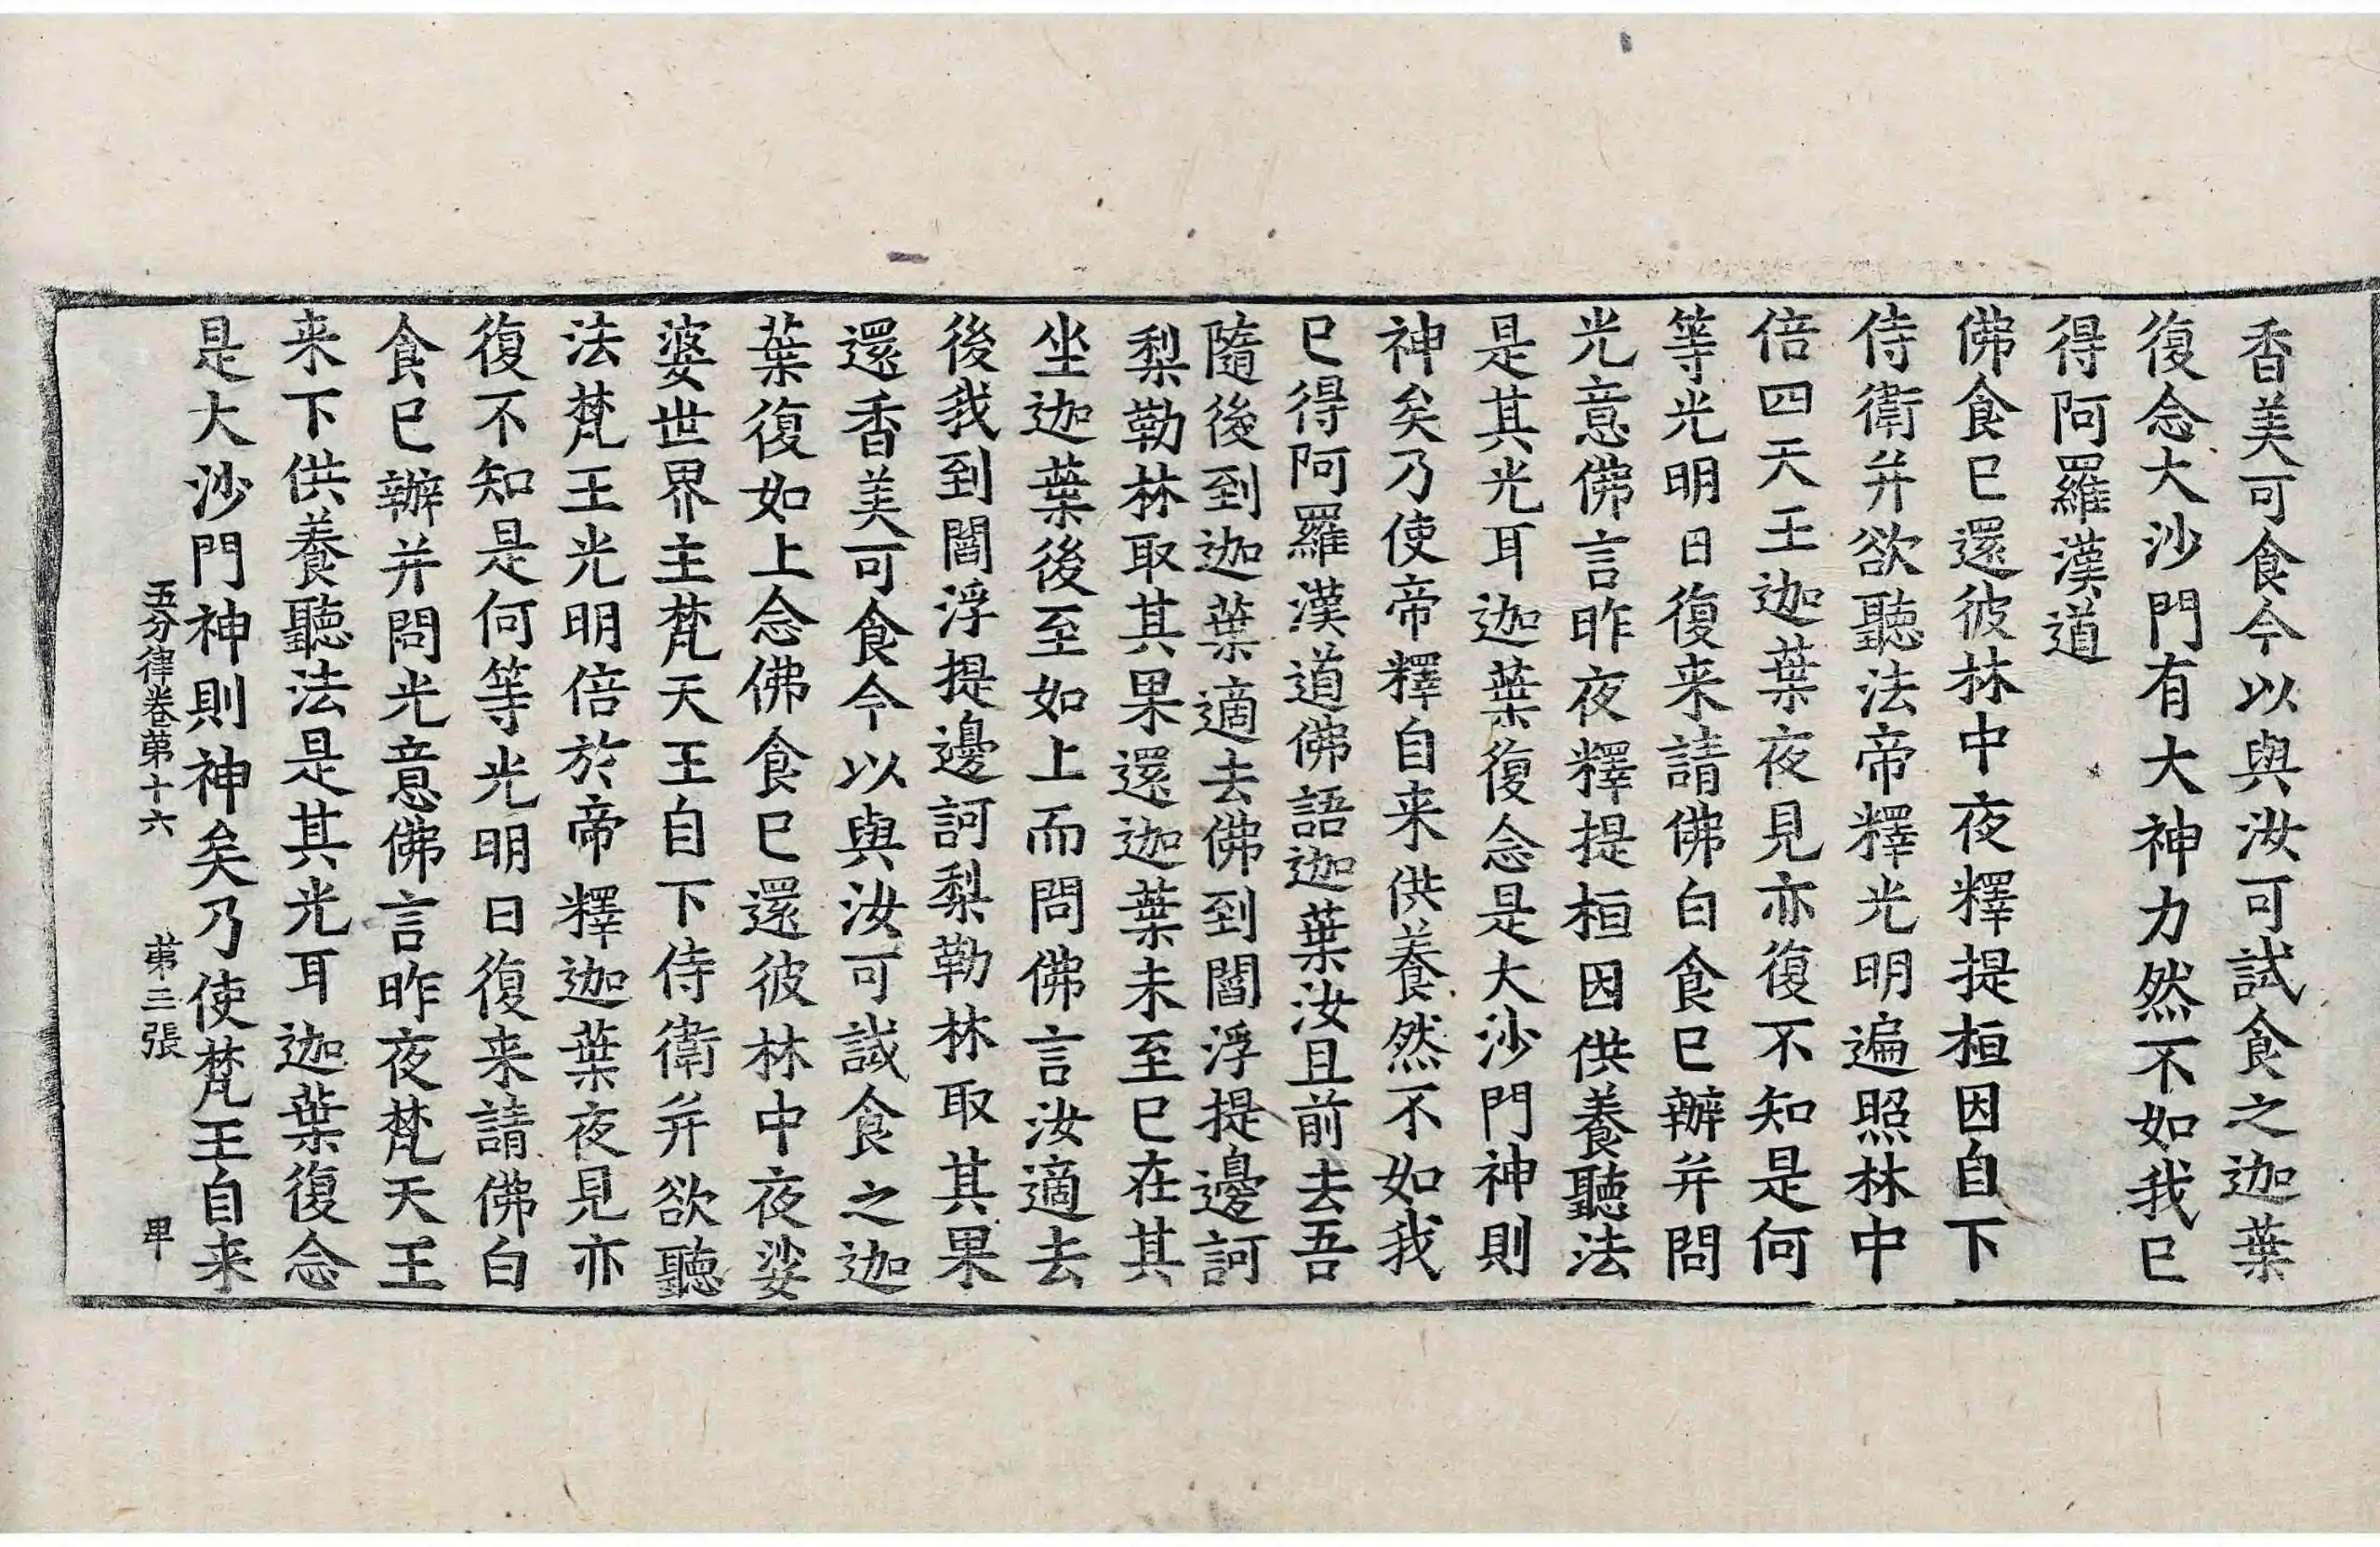 香美可食今以與汝可試食之迦葉
復念大沙門有大神力然不如我已
得阿羅漢道
佛食已還彼林中夜釋提桓因自下
侍衛并欲聽法帝釋光明遍照林中
倍四天王迦葉夜見亦復不知是何
等光明明日復来請佛白食已辦并問
光意佛言昨夜釋提桓因供養聽法
是其光耳迦葉復念是大沙門神則
神矣乃使帝釋自来供養然不如我
已得阿羅漢道佛語迦葉汝且前去吾
隨後到迦葉適去佛到閻浮提邊訶
梨勒林取其果還迦葉未至已在其
坐迦葉後至如上而問佛言汝適去
後我到閻浮提邊訶梨勒林取其果
還香美可食今以與汝可試食之迦
葉復如上念佛食已還彼林中夜娑
婆世界主梵天王自下侍衛并欲聽
法梵王光明倍於帝釋迦葉夜見亦
復不知是何等光明日復来請佛白
食已辦并問光意佛言昨夜梵天王
来下供養聽法是其光耳迦葉復念
是大沙門神則神矣乃使梵王自来
五分律卷苐十六 苐三張 甲